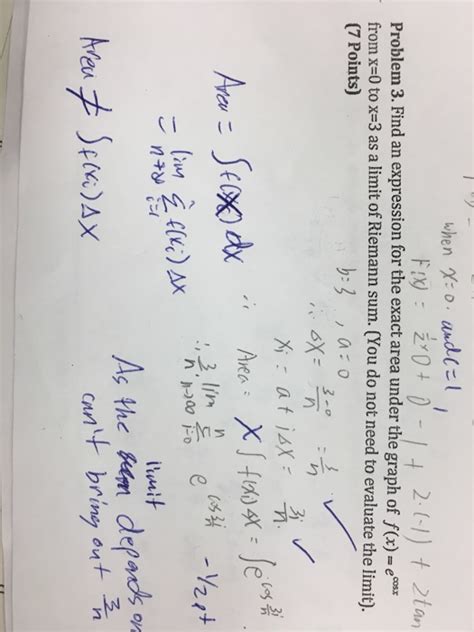 when x=0. and c=1,
F(x) = ½×0 + 0 - 1 + 2(-1) + 2tan
Problem 3. Find an expression for the exact area under the graph of f(x) = e^{cosx}
from x=0 to x=3 as a limit of Riemann sum. (You do not need to evaluate the limit).
(7 Points)
b=3, a=0
∴ Δx = (3-0)/n = 3/n ✓
xi = a+iΔx = 3i/n. ✓
Area = ∫f(x)dx ∴ Area = X ∫f(xi)Δx = ∫e^{cos 3i/n}
= lim n→∞ Σ i=1 f(xi)Δx ∴ 3/n lim n→∞ Σ i=0 n e^{cos 3i/n} - 1/2 pt
Area ≠ ∫f(xi)Δx
As the limit depends on
can't bring out 3/n